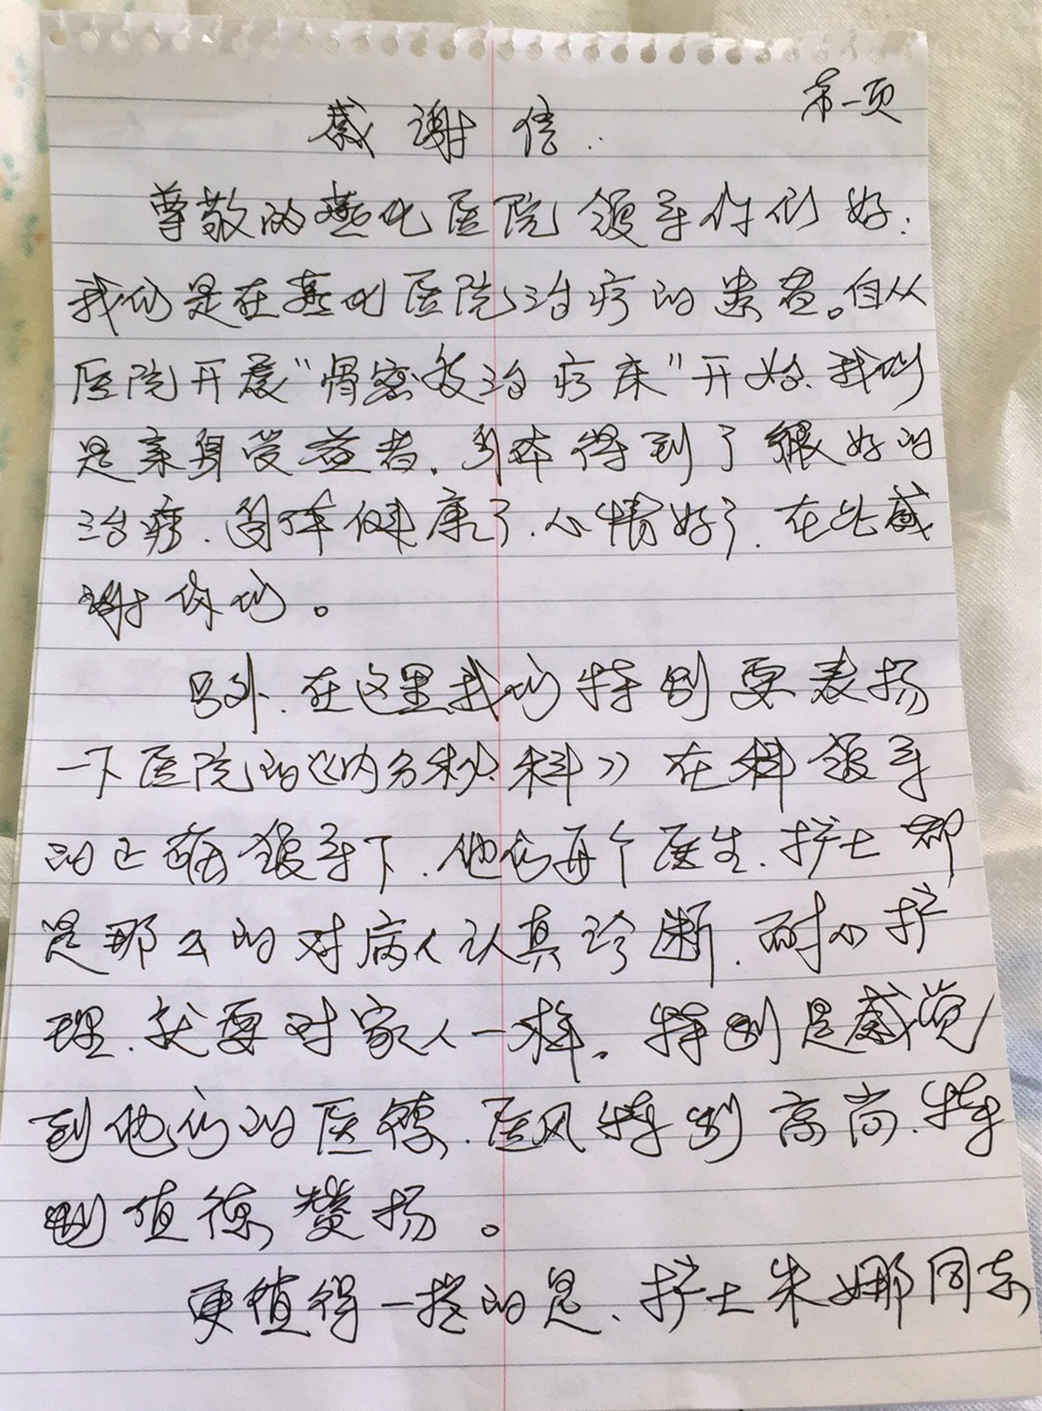 第一页
感谢信.
尊敬的燕化医院领导你们好:
我们是在燕化医院治疗的患者。自从
医院开展"骨密度治疗床"开始、我们
是亲身受益者.身体得到了很好的
治疗.身体健康了.心情好了.在此感
谢你们。
另外.在这里我们特别要表扬
一下医院的《内分秘科》在科领导
的正确领导下.他们每个医生.护士都
是那么的对病人认真诊断.耐心护
理.就要对家人一样。特别是感觉
到他们的医德.医风特别高尚.特
别值得赞扬。
更值得一提的是、护士朱娜同志